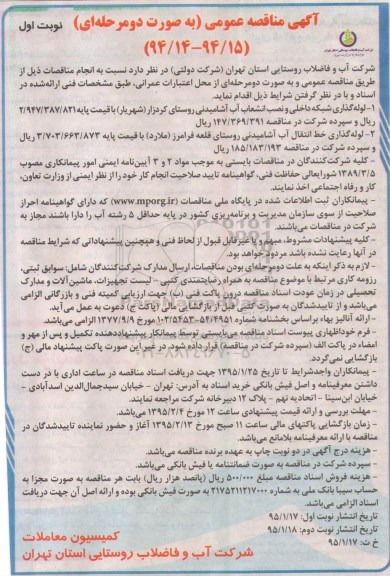 آگهی مناقصه عمومی (به صورت دومرحله‌ای)
نوبت اول
(۹۴/۱۴-۹۴/۱۵)
شرکت آب و فاضلاب روستایی استان تهران (شرکت دولتی) در نظر دارد نسبت به انجام مناقصات ذیل از
طریق مناقصه عمومی و به صورت دومرحله‌ای از محل اعتبارات عمرانی، طبق مشخصات فنی ارائه‌شده در
اسناد و با در نظر گرفتن شرایط ذیل اقدام نماید.
۱- لوله‌گذاری شبکه داخلی و نصب انشعاب آب آشامیدنی روستای کردزار (شهریار) با قیمت پایه ۲/۹۴۷/۳۸۷/۸۲۱
ریال و سپرده شرکت در مناقصه ۱۴۷/۳۶۹/۳۹۱ ریال
۲- لوله‌گذاری خط انتقال آب آشامیدنی روستای قلعه فرامرز (ملارد) با قیمت پایه ۳/۷۰۳/۶۶۳/۸۷۳ ریال
و سپرده شرکت در مناقصه ۱۸۵/۱۸۳/۱۹۳ ریال
- کلیه شرکت‌کنندگان در مناقصات بایستی به موجب مواد ۲ و ۳ آیین‌نامه ایمنی امور پیمانکاری مصوب
۱۳۸۹/۳/۵ شورایعالی حفاظت فنی، گواهینامه تایید صلاحیت انجام کار خود را از نظر ایمنی از وزارت تعاون،
کار و رفاه اجتماعی اخذ نمایند.
- پیمانکاران ثبت اطلاعات شده در پایگاه ملی مناقصات (www.mporg.ir) که دارای گواهینامه احراز
صلاحیت از سوی سازمان مدیریت و برنامه‌ریزی کشور در پایه حداقل ۵ رشته آب را دارا باشند مجاز به
شرکت در مناقصات می‌باشند.
- کلیه پیشنهادات مشروط، مبهم و یا غیرقابل قبول از لحاظ فنی و همچنین پیشنهاداتی که شرایط مناقصه
در آنها رعایت نشده باشد مردود خواهد بود.
- لازم به ذکر اینکه به علت دومرحله‌ای بودن مناقصات، ارسال مدارک شرکت‌کنندگان شامل: سوابق ثبتی،
رزومه کاری مرتبط با موضوع مناقصه به همراه رضایتمندی کتبی – لیست تجهیزات، ماشین آلات و مدارک
تحصیلی در زمان عودت اسناد مناقصه درون پاکت فنی (ب) جهت ارزیابی کمیته فنی و بازرگانی الزامی
می‌باشد و از تاییدشدگان به صورت کتبی قبل از بازگشایی مالی (پاکت ج) دعوت به عمل می‌آید.
- ارائه آنالیز بهاء براساس بخشنامه شماره ۱۰۲/۵۴۵۳-۵۴/۴۹۵۱ مورخ ۱۳۷۷/۹/۹ الزامی می‌باشد.
- فرم خوداظهاری پیوست اسناد مناقصه می‌بایستی توسط پیمانکار پیشنهاددهنده تکمیل و پس از مهر و
امضاء در پاکت الف (سپرده شرکت در مناقصه) قرار داده شود. در غیر این صورت پاکت پیشنهاد مالی (ج)
بازگشایی نمی‌گردد.
- پیمانکاران واجدشرایط تا تاریخ ۱۳۹۵/۱/۲۵ جهت دریافت اسناد مناقصه در ساعت اداری با در دست
داشتن معرفینامه و اصل فیش بانکی خرید اسناد به آدرس: تهران – خیابان سیدجمال‌الدین اسدآبادی –
خیابان ابن‌سینا – اتحادیه نهم – پلاک ۱۲ دبیرخانه شرکت مراجعه نمایند.
- مهلت بررسی و ارائه قیمت پیشنهادی ساعت ۱۲ مورخ ۱۳۹۵/۲/۴ می‌باشد.
- زمان بازگشایی پاکتهای مالی ساعت ۱۱ صبح مورخ ۱۳۹۵/۲/۱۳ آغاز و حضور نماینده تاییدشدگان در
مناقصه با ارائه معرفینامه بلامانع می‌باشد.
- هزینه درج آگهی در دو نوبت چاپ به عهده برنده مناقصه می‌باشد.
- سپرده شرکت در مناقصه به صورت ضمانتنامه یا فیش بانکی می‌باشد.
- هزینه فروش اسناد مناقصه مبلغ ۵۰۰/۰۰۰ ریال (پانصد هزار ریال) بابت هر مناقصه به صورت مجزا به
حساب سیبا بانک ملی به شماره ۲۱۷۵۲۱۱۲۱۷۰۰۰ به صورت فیش بانکی بوده و ارائه اصل آن جهت دریافت
اسناد الزامی می‌باشد.
تاریخ انتشار نوبت اول: ۹۵/۱/۱۷
تاریخ انتشار نوبت دوم: ۹۵/۱/۱۸
خ ت: ۹۵/۱/۱۷
کمیسیون معاملات
شرکت آب و فاضلاب روستایی استان تهران